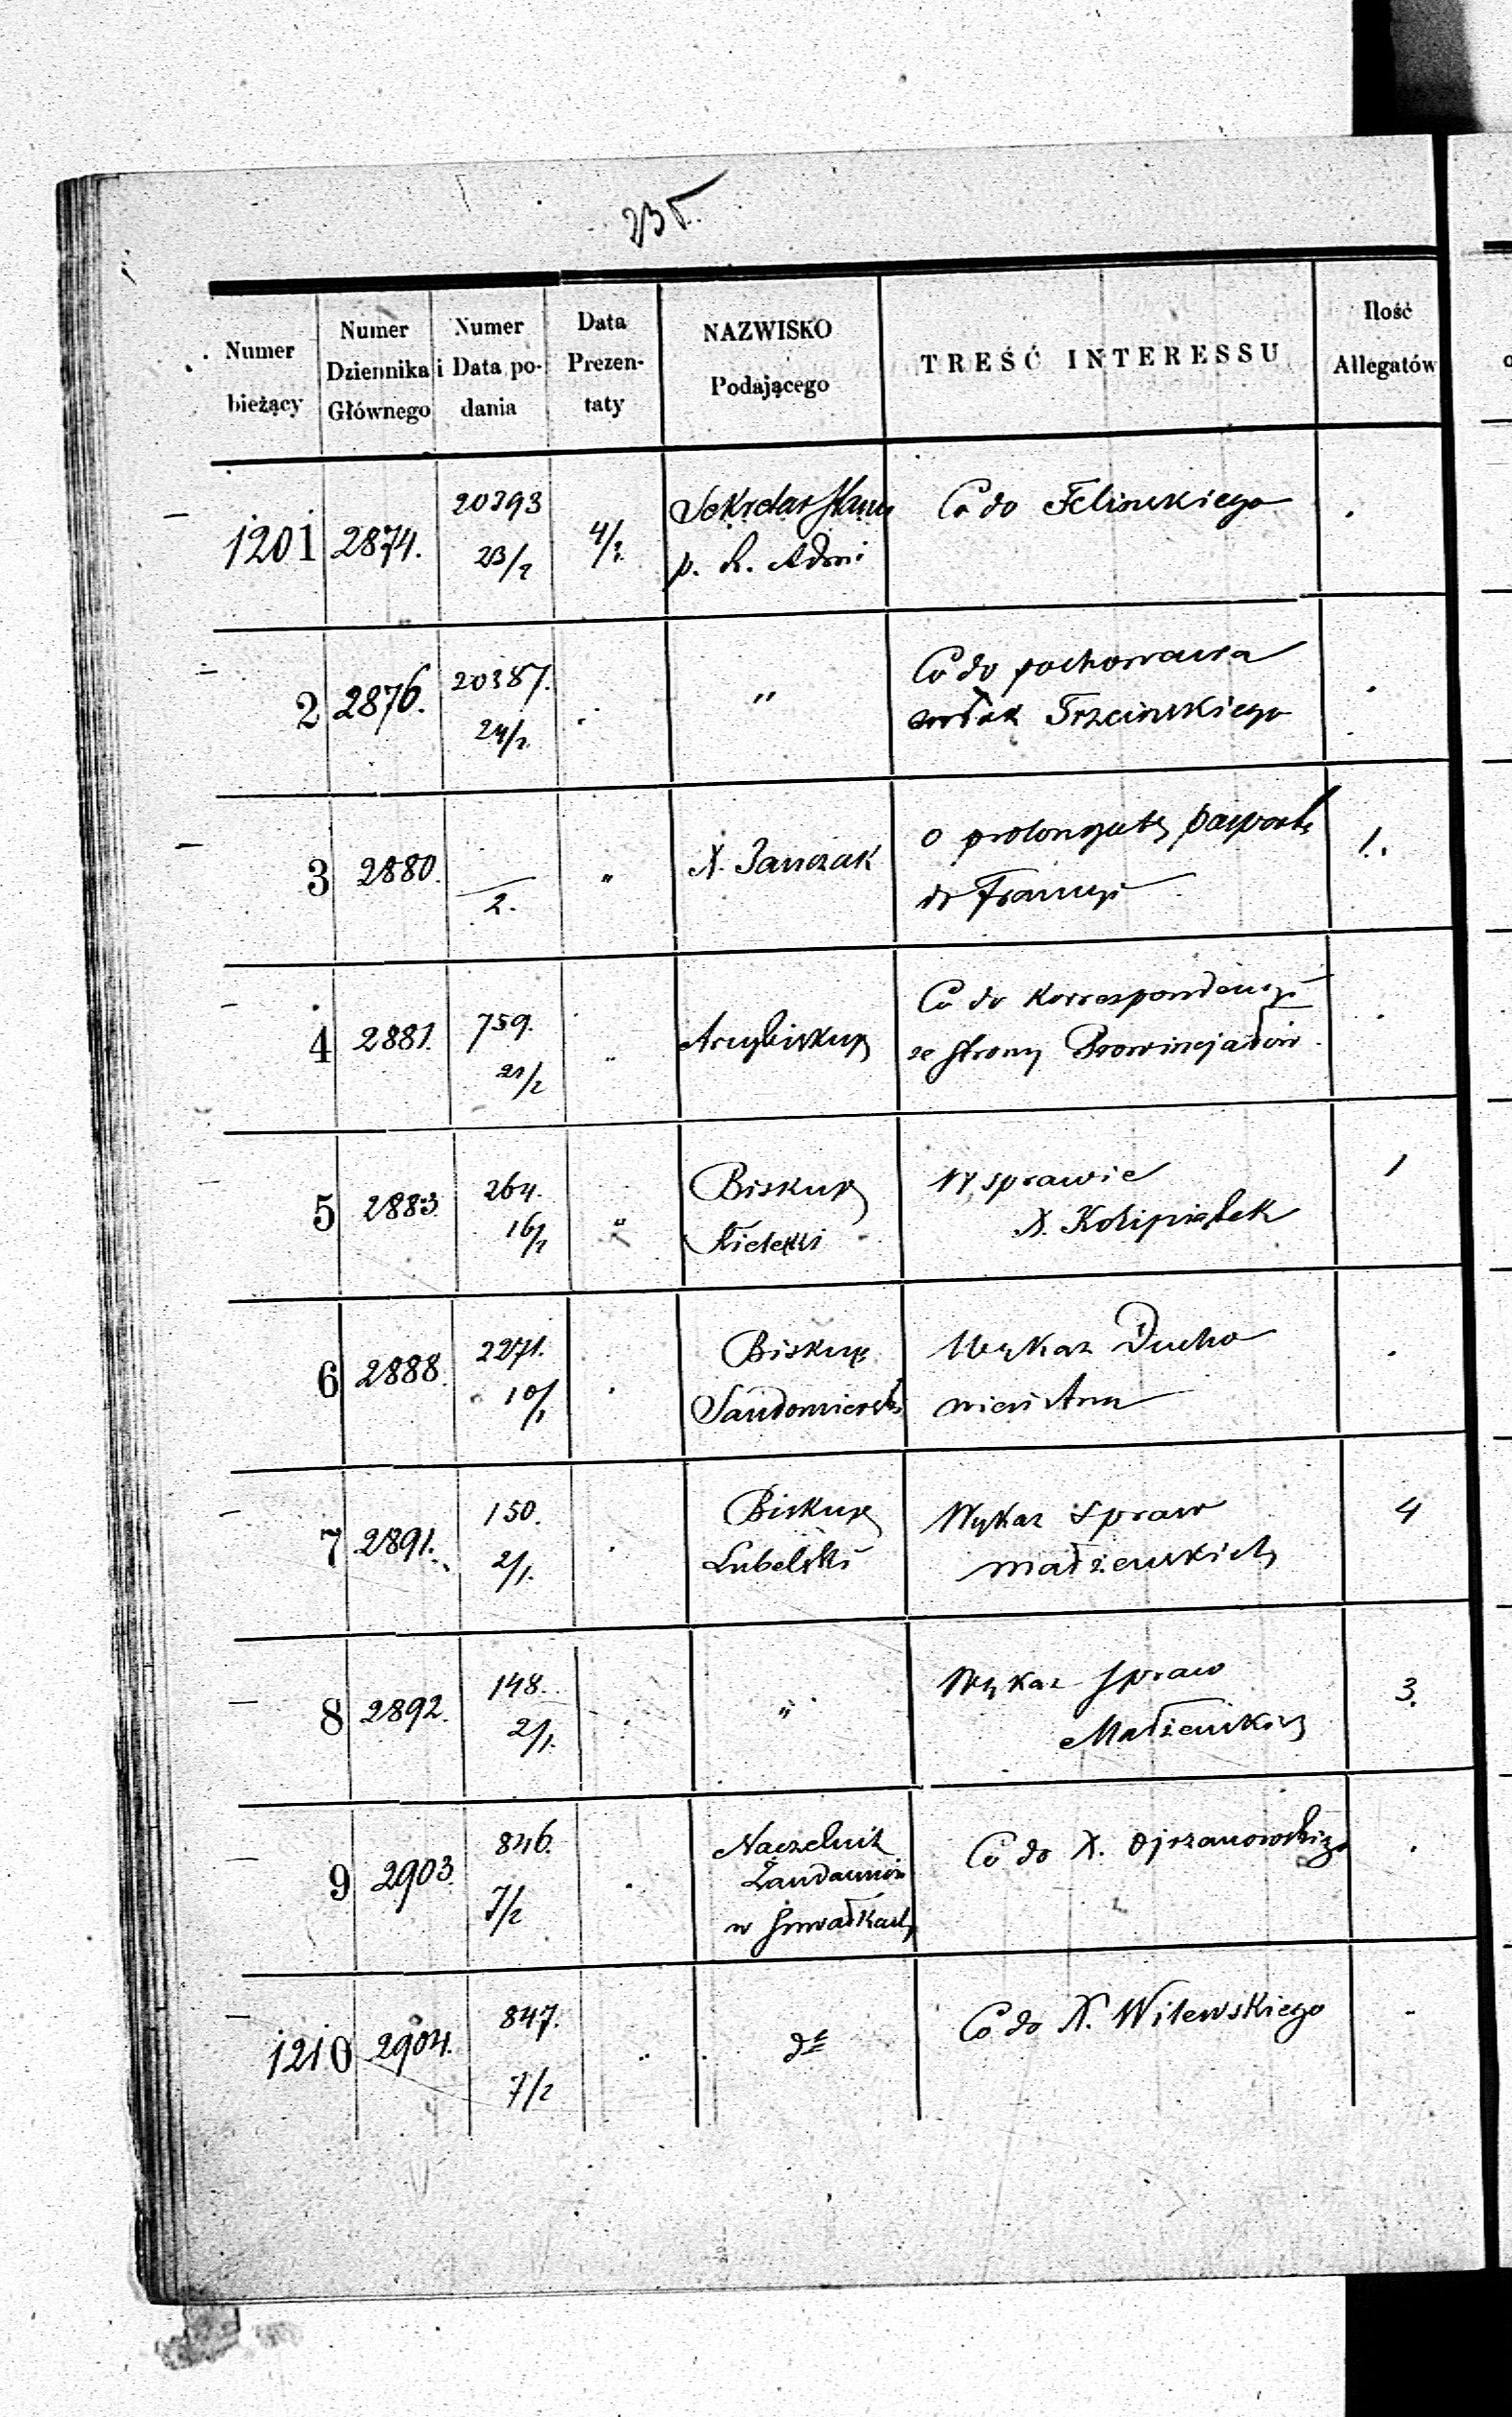 235.
Numer bieżący
Numer Dziennika Głównego
Numer i Data podania
Data Prezentaty
NAZWISKO Podającego
TREŚĆ INTERESSU
Ilość Allegatów
1201 2874. 20393 23/2 4/3 Sekretarz Stanu Co do Felinskiego
p. d. Admi
2 2876. 20387. 24/2 " Co do pochowania
zwłok Trzcinskiego
3 2880. /2. " X. Janczak o prolongatę paszportu 1.
do Francyi
4 2881. 759. 21/2 " Arcybiskup Co do Korrespondencyi
ze strony Prowincjałów
5 2883. 264. 16/2 " Biskup W sprawie 1
Kielecki X. Kolipiętek
6 2888. 2271. 10/1 Biskup Wykaz Ducho
Sandomierski wieństwa
7 2891. 150. 2/1. Biskup Wykaz spraw 4
Lubelski małżenskich
8 2892. 148. 2/1. " Wykaz spraw 3.
Małżenskich
9 2903. 846. 7/2 Naczelnik Co do X. Ojrzanowskiego
Żandarmów
w Suwałkach
1210 2904. 847. 7/2 " do Co do X. Witewskiego